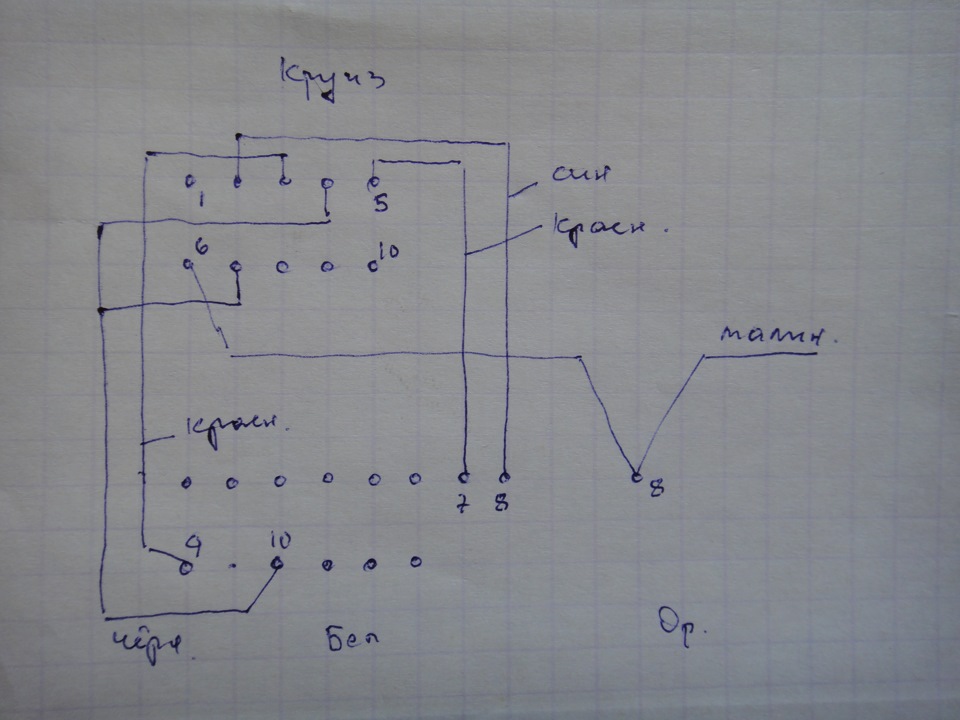 Круиз
син
1
5
Красн.
6
10
малин.
красн.
7
8
8
9
10
чёрн.
Бел
Ор.